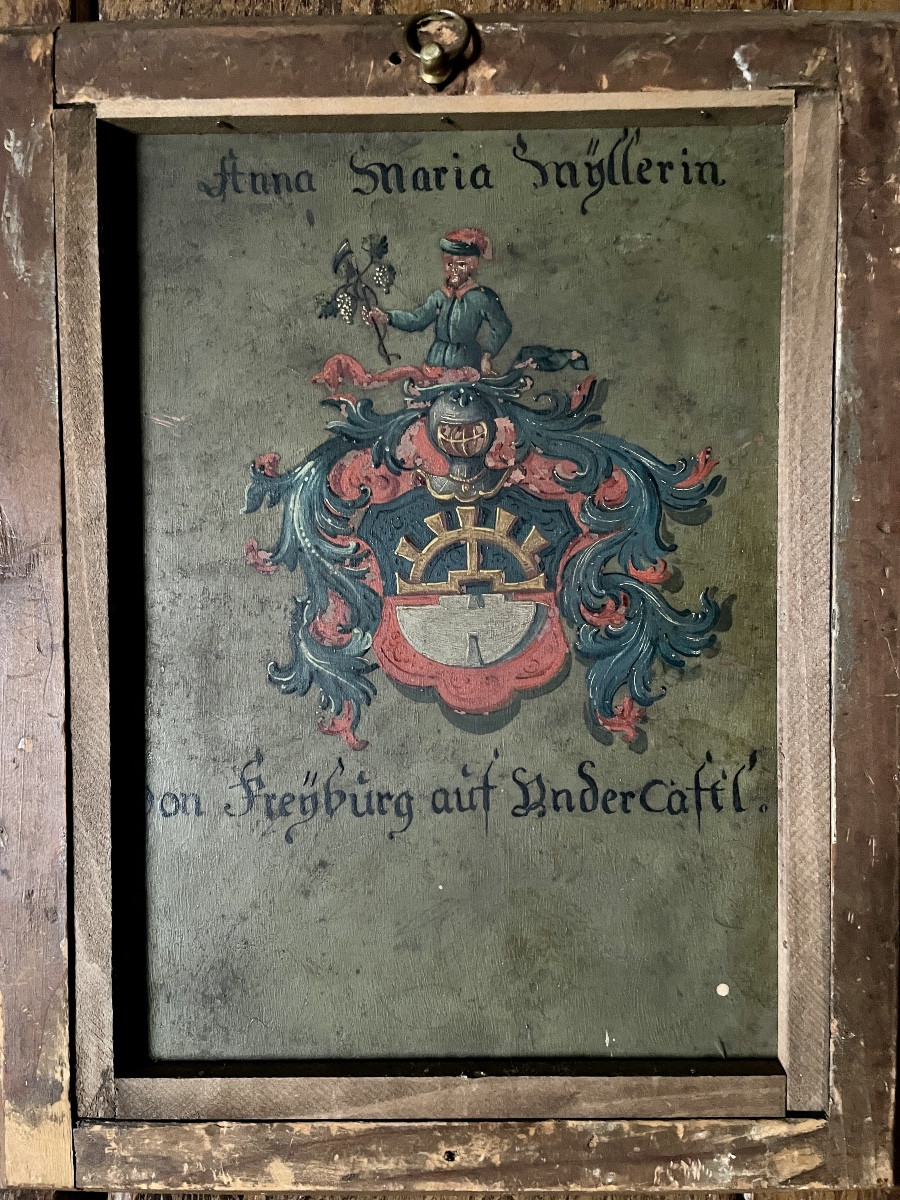 Anna Maria Mÿllerin
von Freÿbůrg aůf VnderCaſtl.